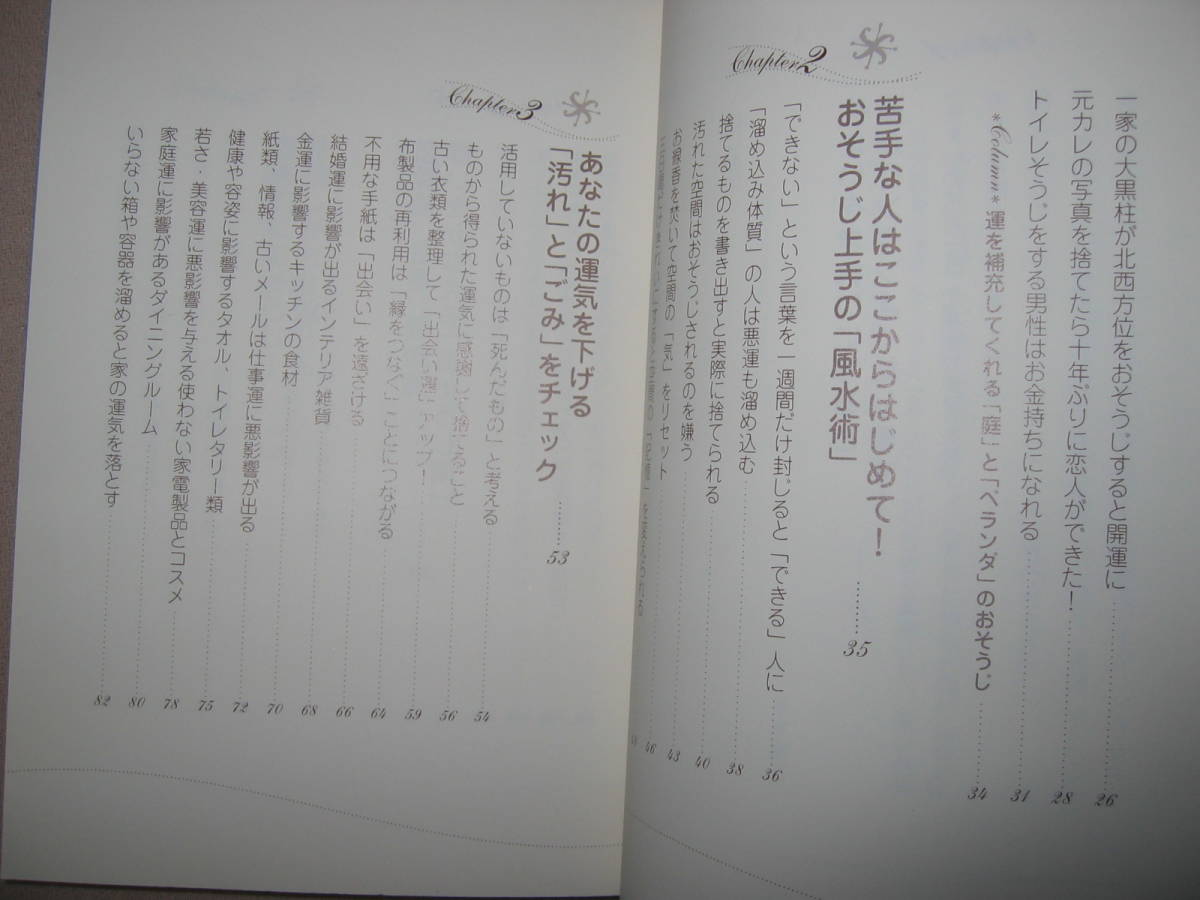 一家の大黒柱が北西方位をおそうじすると開運に 26
元カレの写真を捨てたら十年ぶりに恋人ができた! 28
トイレそうじをする男性はお金持ちになれる 31
*Column* 運を補充してくれる「庭」と「ベランダ」のおそうじ 34
Chapter2
苦手な人はここからはじめて!
おそうじ上手の「風水術」 35
「できない」という言葉を一週間だけ封じると「できる」人に 36
「溜め込み体質」の人は悪運も溜め込む 38
捨てるものを書き出すと実際に捨てられる 40
汚れた空間はおそうじされるのを嫌う 43
お線香を焚いて空間の「気」をリセット 46
Chapter3
あなたの運気を下げる
「汚れ」と「ごみ」をチェック 53
活用していないものは「死んだもの」と考える 54
ものから得られた運気に感謝して捨てること 56
古い衣類を整理して「出会い運」アップ! 59
布製品の再利用は「縁をつなぐ」ことにつながる 64
不用な手紙は「出会い」を遠ざける 66
結婚運に影響が出るインテリア雑貨 68
金運に影響するキッチンの食材 70
紙類、情報、古いメールは仕事運に悪影響が出る 72
健康や容姿に影響するタオル、トイレタリー類 75
若さ・美容運に悪影響を与える使わない家電製品とコスメ 78
家庭運に影響があるダイニングルーム 80
いらない箱や容器を溜めると家の運気を落とす 82